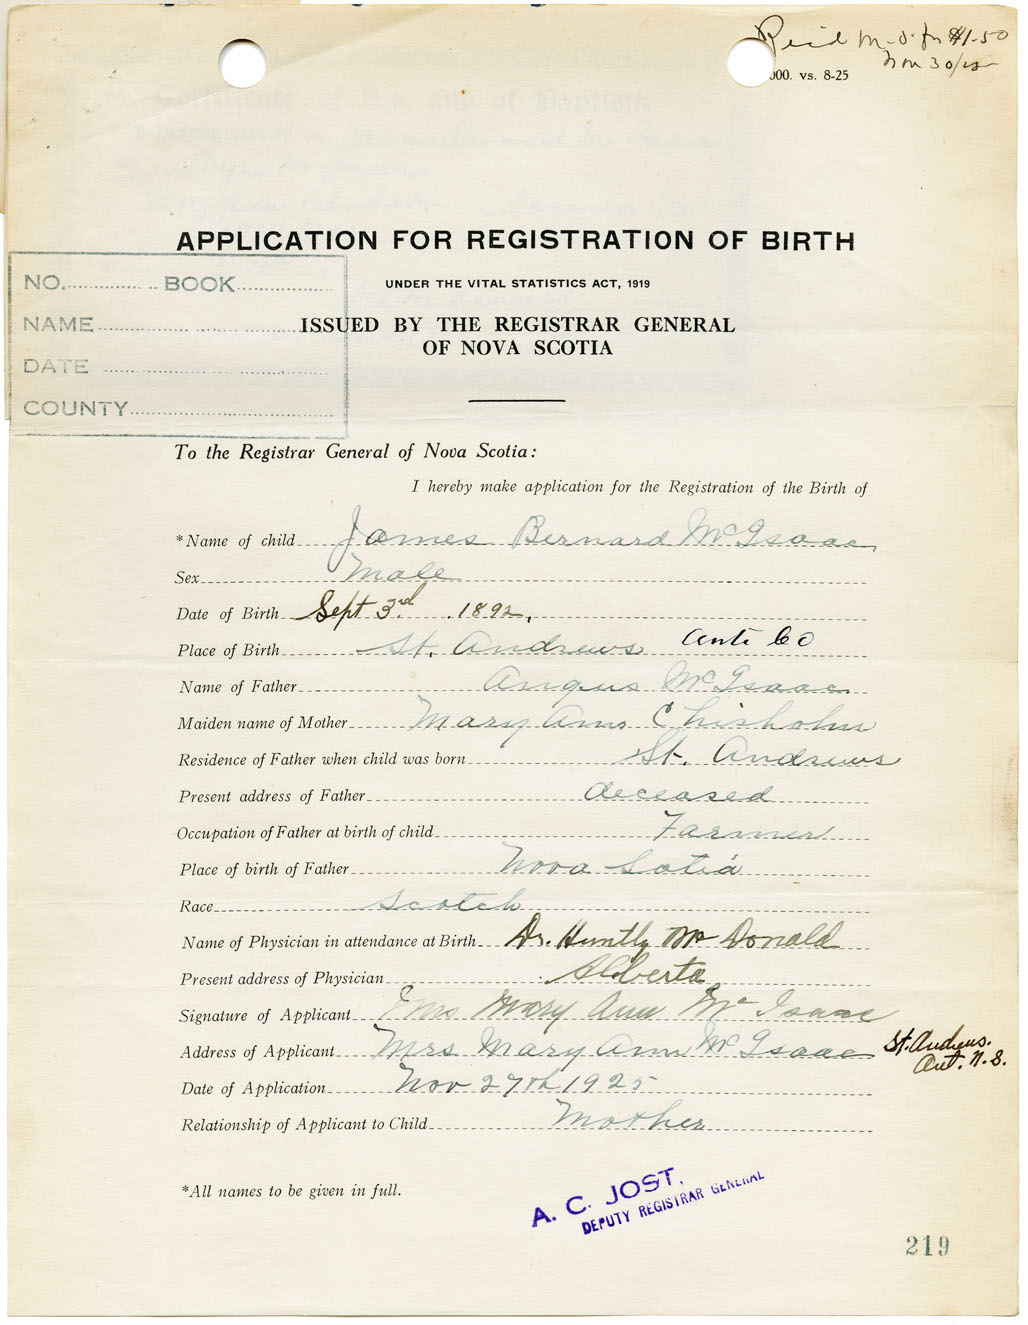 M.O. for $1.50
Nov 30/25
000. vs. 8-25
APPLICATION FOR REGISTRATION OF BIRTH
UNDER THE VITAL STATISTICS ACT, 1919
ISSUED BY THE REGISTRAR GENERAL
OF NOVA SCOTIA
NO. BOOK
NAME
DATE
COUNTY
To the Registrar General of Nova Scotia:
I hereby make application for the Registration of the Birth of
*Name of child James Bernard McIsaac
Sex Male
Date of Birth Sept 3rd 1892.
Place of Birth St. Andrews Anti Co
Name of Father Angus McIsaac
Maiden name of Mother Mary Ann Chisholm
Residence of Father when child was born St. Andrews
Present address of Father deceased
Occupation of Father at birth of child Farmer
Place of birth of Father Nova Sotia
Race Scotch
Name of Physician in attendance at Birth Dr. Huntly McDonald
Present address of Physician Alberta
Signature of Applicant Mrs Mary Ann McIsaac
Address of Applicant Mrs Mary Ann McIsaac St. Andrews.
Ant. N.S.
Date of Application Nov 27th 1925
Relationship of Applicant to Child Mother
*All names to be given in full.
A. C. JOST,
DEPUTY REGISTRAR GENERAL
219